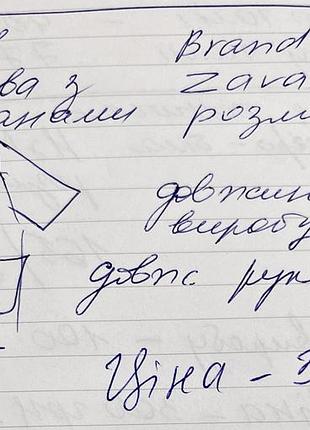 в Brand
ва з Zara
анами розм
довжин
виробу
довж рук
Ціна -